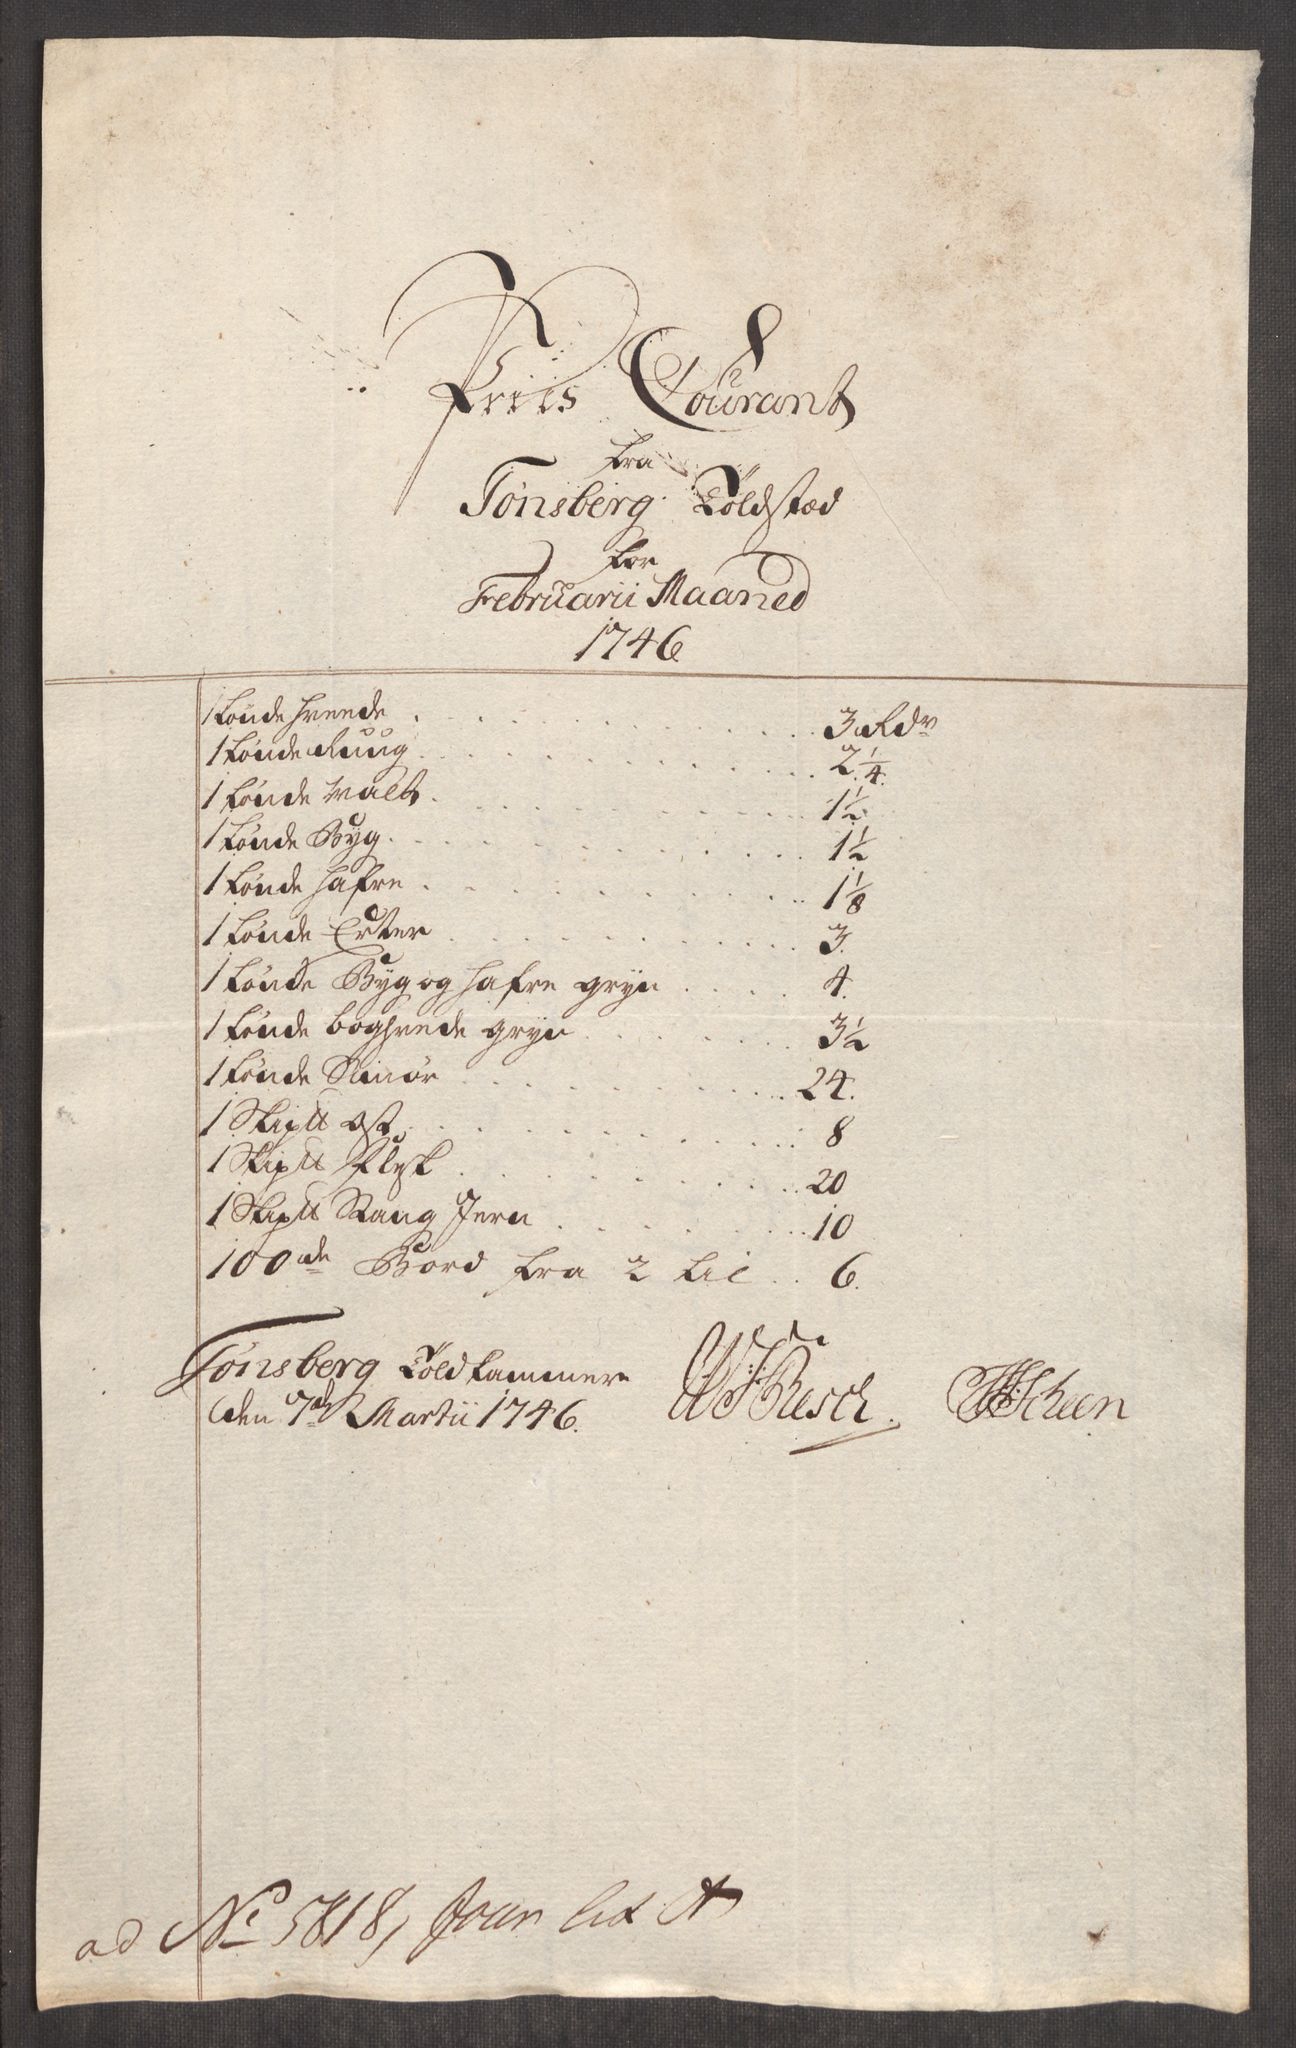 Priis Courant
fra
Tønsberg Toldstæd
for
Februarii Maaned
1746
1 tønde hveede . . . 3 Rdr
1 tønde Ruug . . . 2 1/4.
1 tønde Malt . . . 1 1/2.
1 tønde Byg . . . 1 1/2
1 tønde hafre . . . 1 1/8
1 tønde Erter . . . 3.
1 tønde Byg og hafre gryn . . . 4.
1 tønde boghvede gryn . . . 3 1/2
1 tønde Smør . . . 24.
1 Skip℔ Ost . . . 8
1 Skip℔ Flesk . . . 20
1 Skip℔ Stang Jern . . . 10
100de Bord fra 2 til . . 6.
Tønsberg Told kammer
den 7de Martii 1746.
Resch. Scheen
ad No 5818, Jour lit A